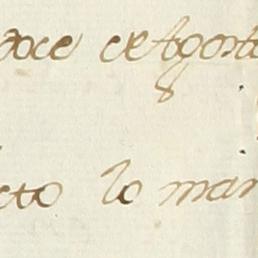 doce de Agosto
cto lo man